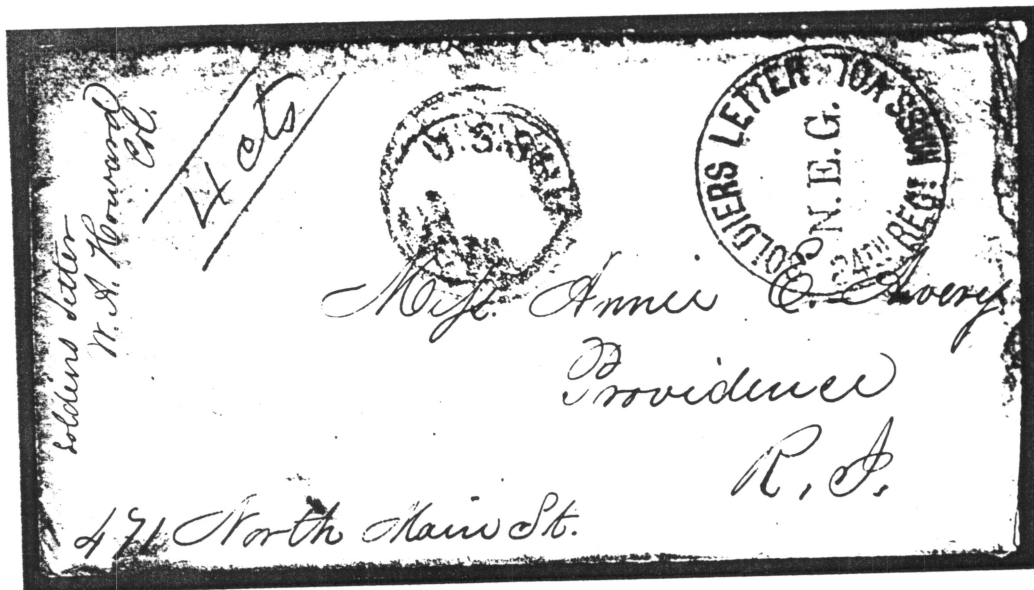 Soldiers Letter
W. A. Howard
Col.
4 cts
U.S. SHIP
SOLDIERS LETTER
24TH REGT MASS VOL
N.E.G.
Miss. Annie E. Avery
Providence
R. I.
471 North Main St.